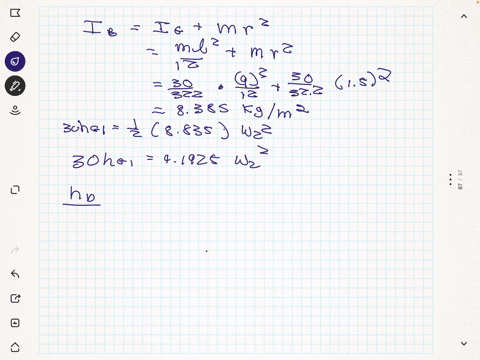 I_B = I_G + mr²
= ml²/12 + mr²
= 30/32.2 · (9)²/12 + 30/32.2 (1.5)²
= 8.385 kg/m²
30hG1 = 1/2 (8.835) ω₂²
30hG1 = 4.1925 ω₂²
h_D